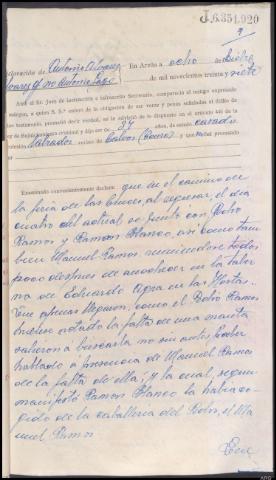 J.6.351.920
9
claración de Antonio Alvarez
Alvarez y no Antonio Lage
En Arzúa a ocho de Dicbre
de mil novecientos treinta y siete
Ante el Sr. Juez de instrucción e infrascrito Secretario, compareció el testigo expresado
a quien S. S.ª enteró de la obligación de ser veraz y penas señaladas al delito de
so testimonio, prometió decir verdad, se le advirtió de lo dispuesto en el artículo 446 de la
de Enjuiciamiento criminal y dijo ser de 37 años, de estado casado
labrador, vecino de
Examinado convenientemente declara: que en el camino de
la feria de las Cruces, al regresar, el día
cuatro del actual se juntó con Pedro
Ramos y Ramón Blanco, así como tam-
bien Manuel Ramos reuniendose todos
poco despues de anochecer en la taber
na de Eduardo en las Hortas.-
Que apenas llegaron, como el Pedro Ramos
hubiese notado la falta de una manta
salieron a buscarla no sin antes haber
hablado a presencia de Manuel Ramos
de la falta de ella; y la cual, segun
manifestó Ramón Blanco la había co-
gido de la caballeria del Pedro, el Ma
nuel Ramos